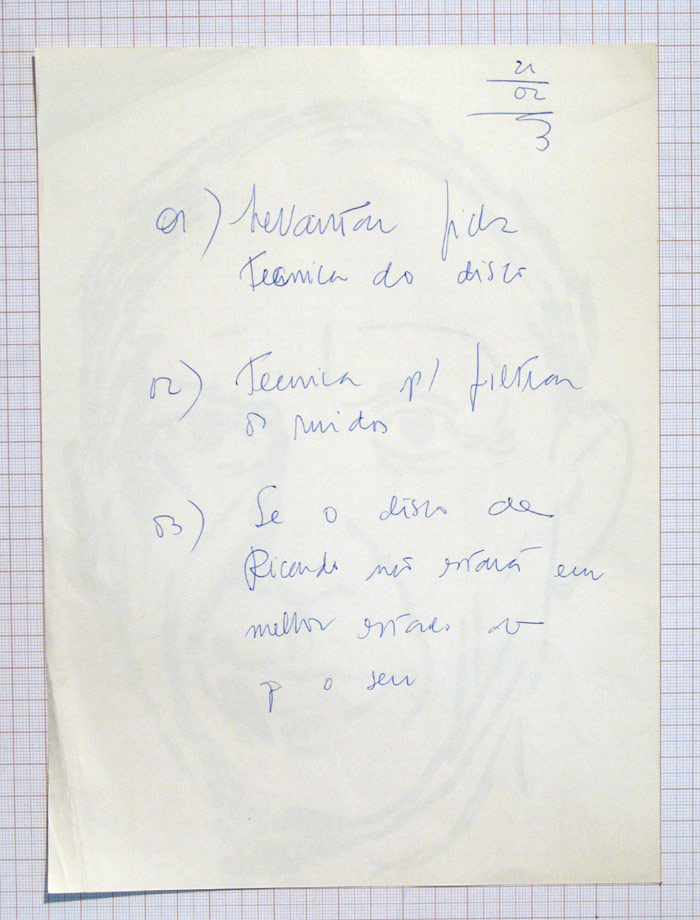 21
02
01) Levantar ficha
Tecnica do disco
02) Tecnica p/ filtrar
os ruidos
03) Se o disco de
Ricardo não estará em
melhor estado
o seu